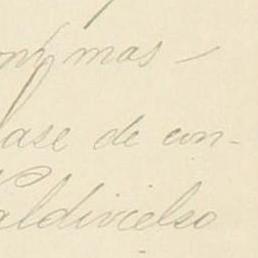 mas
ase de con-
aldivielso